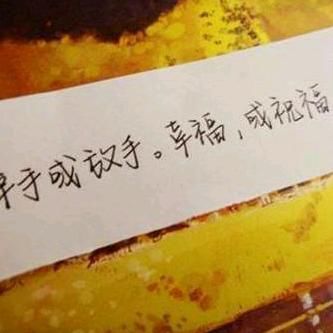 手或敌手。幸福，或祝福